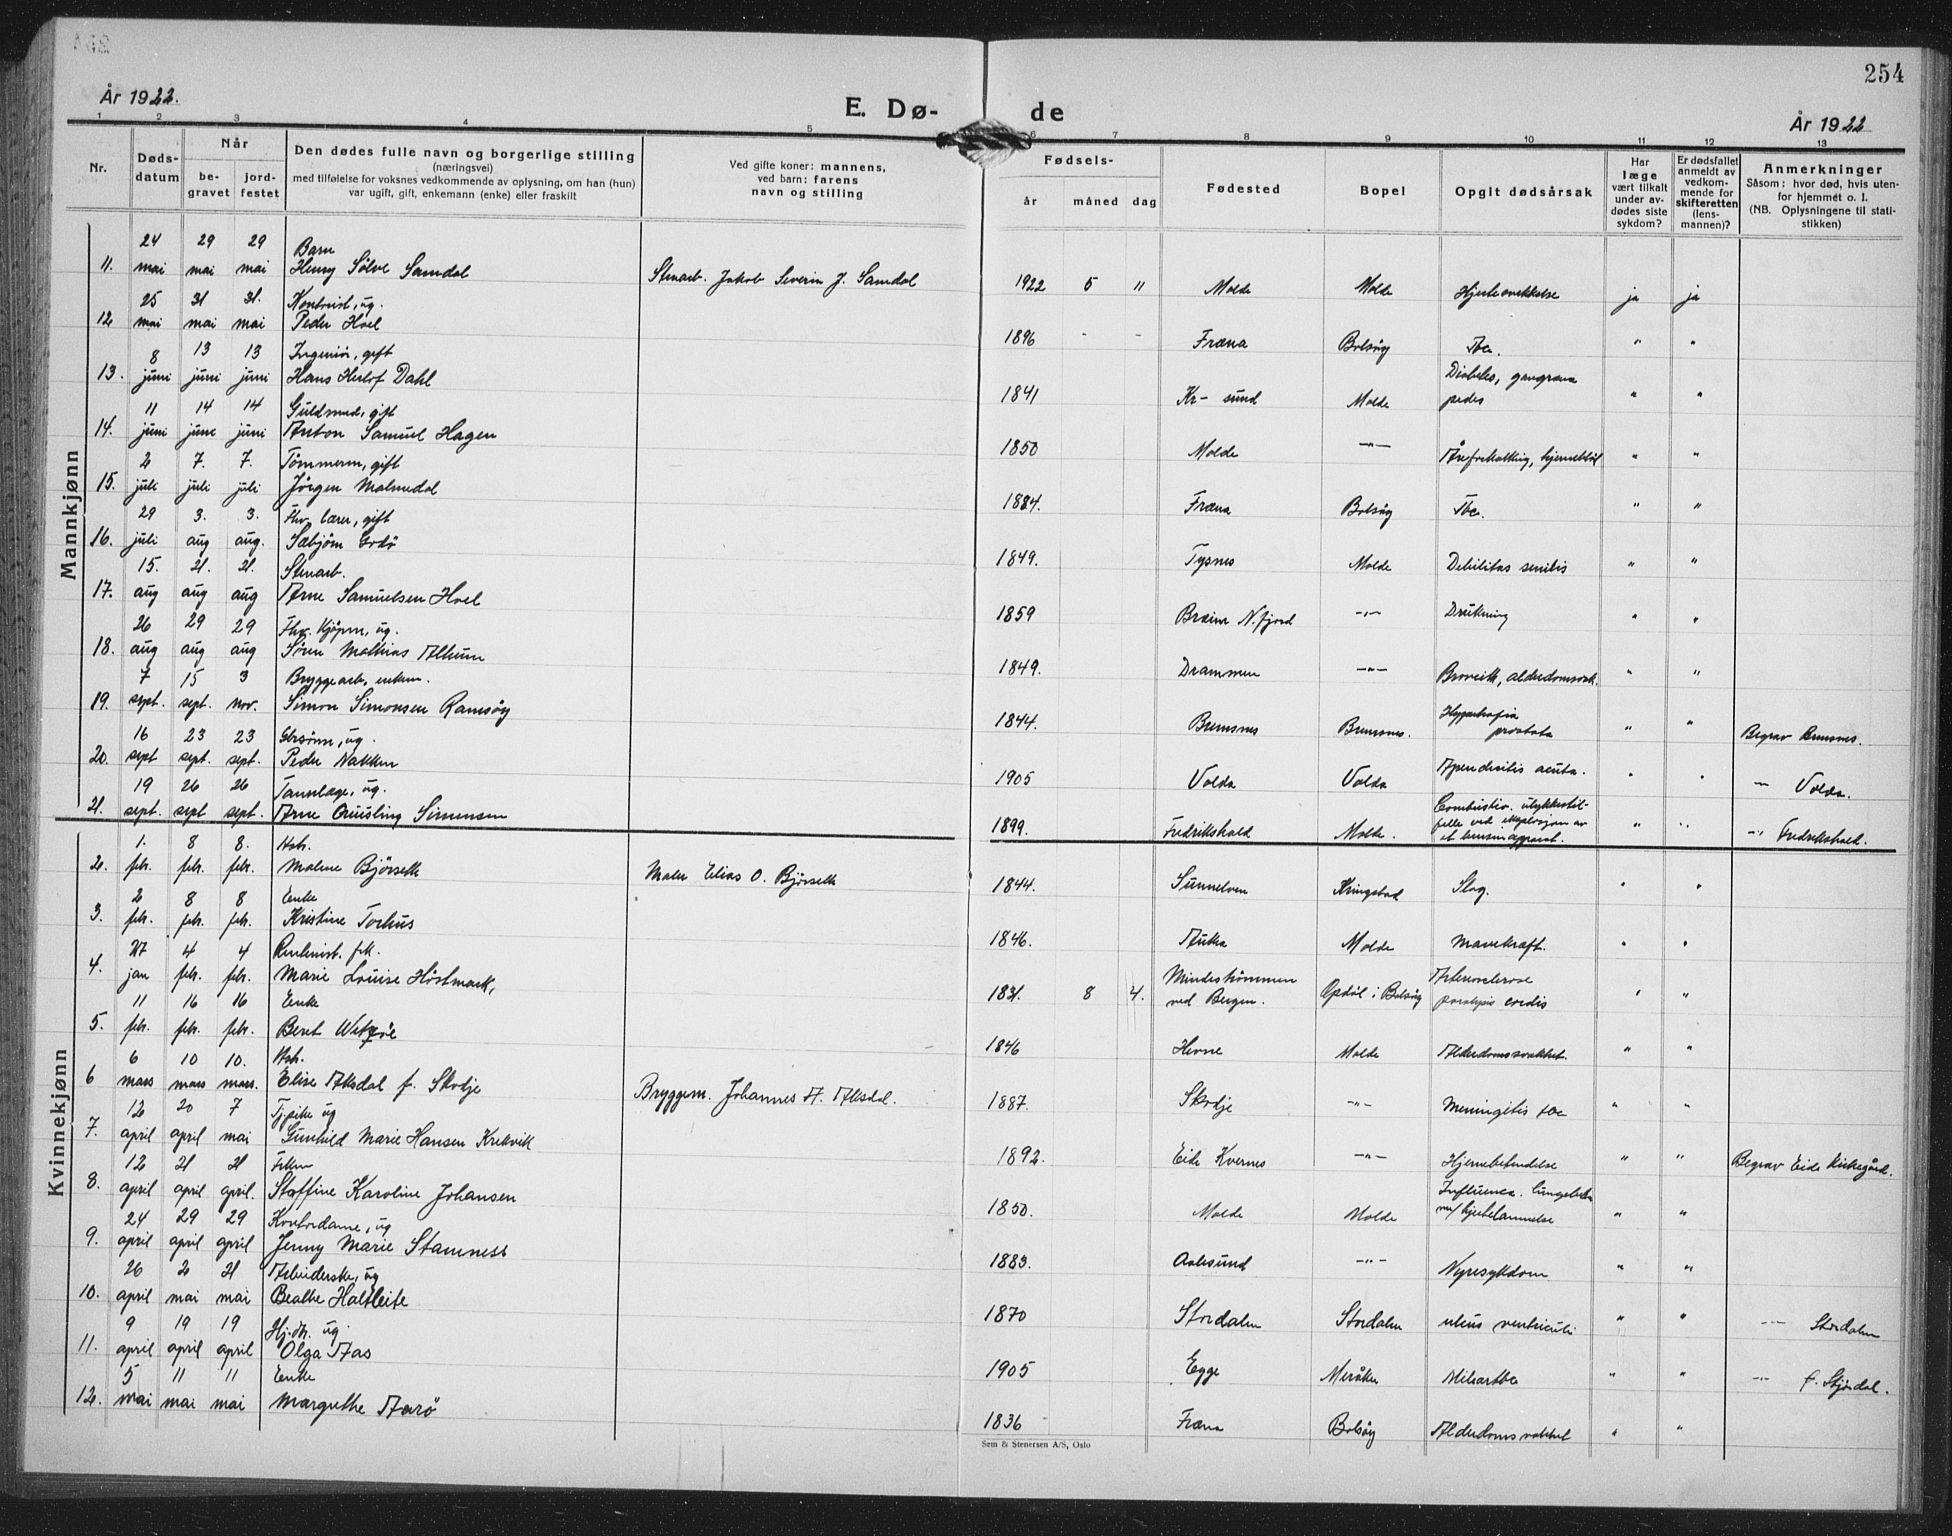 254
År 1922.
E. Dø-de
År 1922
1 2 3 4 5 6 7 8 9 10 11 12 13
Nr.
Døds-
datum
Når
be-
gravet
jord-
festet
Den dødes fulle navn og borgerlige stilling
(næringsvei)
med tilføielse for voksnes vedkommende av oplysning, om han (hun)
var ugift, gift, enkemann (enke) eller fraskilt
Ved gifte koner: mannens,
ved barn: farens
navn og stilling
Fødsels-
år måned dag
Fødested
Bopel
Opgit dødsårsak
Har
læge
vært tilkalt
under av-
dødes siste
sykdom?
Er dødsfallet
anmeldt av
vedkom-
mende for
skifteretten
(lens-
mannen)?
Anmerkninger
Såsom: hvor død, hvis uten-
for hjemmet o. l.
(NB. Oplysningene til stati-
stikken)
Mannkjønn
24 29 29 Barn
11. mai mai mai Henry Sölve Samdal Stenarb. Jakob Severin J. Samdal 1922 5 " Molde Molde Hjertesvekkelse ja ja
25 31 31. Kontorist, ug.
12 mai mai mai Peder Hoel 1896 - - Fræna Bolsöy Tbc. " "
8 13 13 Ingeniör, gift
13. juni juni juni Hans Herlof Dahl 1841 Kr-sund Molde Diabetes, gangræna
pedes " "
11 14 14 Guldsmed, gift
14. juni june juni Anton Samuel Hagen 1850 Molde -"- Åreforkalkning, " "
2 7. 7. Tömmerm, gift
15. juli juli juli Jörgen Malmedal 1884. Fræna Bolsöy Tbc. " "
29 3. 3. Fhv. lærer, gift
16. juli aug aug. Sæbjörn 1849. Tysnes Molde Debilitas senilis " "
15. 21. 21. Stenarb.
17. aug aug aug Arne Samuelsen Hoel 1859 N.fjord -"- Drukning " "
26 29 29 Fhv. kjöpm, ug.
18. aug aug aug Sören Mathias 1849. Drammen -"- alderdomssvak. " "
7 15 3 Bryggearb, enkem.
19. sept. sept. nov. Simon Simonsen Ramsöy 1844. Bremsnes Bremsnes. Hypertrofia
prostata " " Begrav Bremsnes.
16 23 23 ug.
20. sept sept. sept. Peder Nakken 1905 Volda Volda Apendisitis acuta. " " - Volda.
19 26 26 Tannlæge, ug.
21. sept. sept sept. Arne Quisling Simensen 1899. Fredrikshald Molde. Combustio. ulykkestil-
felle ved eksplosjon av
et bensinapparat. " " -" Fredrikshald.
Kvinnekjønn
1. 8 8. Hstr.
2. febr. febr. febr. Malene Björseth Maler Elias O. Björseth 1844. Sunnelven Kringstad Slag. " "
2 8 8 Enke
3. febr. febr. febr. Kristine Torhus 1846. Aukra Molde Mavekræft. " "
27 4 4 frk.
4. jan febr. febr. Marie Louise Höstmark, 1831. 8 4. Mindeströmmen
ved Bergen. Opdöl i Bolsöy Arteriosclerose
paralysis cordis " "
11 16 16 Enke
5. febr. febr. febr. Beret 1846 Hevne Molde Alderdomssvakhet. " "
6 10 10. Hstr.
6 mars mars mars. Elise Aksdal f. Skodje Bryggem. Johannes A. Aksdal. 1887. Skodje -"- Meningitis tbc " "
12 20 7 Tj.pike ug
7. april april mai Gunhild Marie Hansen Krekvik 1892. Eide Kvernes -"- Hjernebetendelse " " Begrav Eide kirkegård.
12 21 21
8. april april april. Staffine Karoline Johansen 1850. Molde Molde Influensa. lungebet.
m/ hjertelammelse " "
24 29 29 Kontordame, ug
9. april april april Jenny Marie Stamness 1883. Aalesund -"- Nyresykdom " "
26 2 21 Arbeiderske, ug
10. april mai mai Beathe Holtleite 1870 Stordalen Stordalen ulcus ventriculi " " -"- Stordalen
9 19 19 ug.
11. april april april Olga Aas 1905 Egge Meråker Miliærtbc " " -" f. Stjördal.
5 11 11 Enke
12. mai mai mai Margrethe Aarö 1836 Fræna Bolsöy Alderdomssvakhet " "
Sem & Stenersen A/S, Oslo